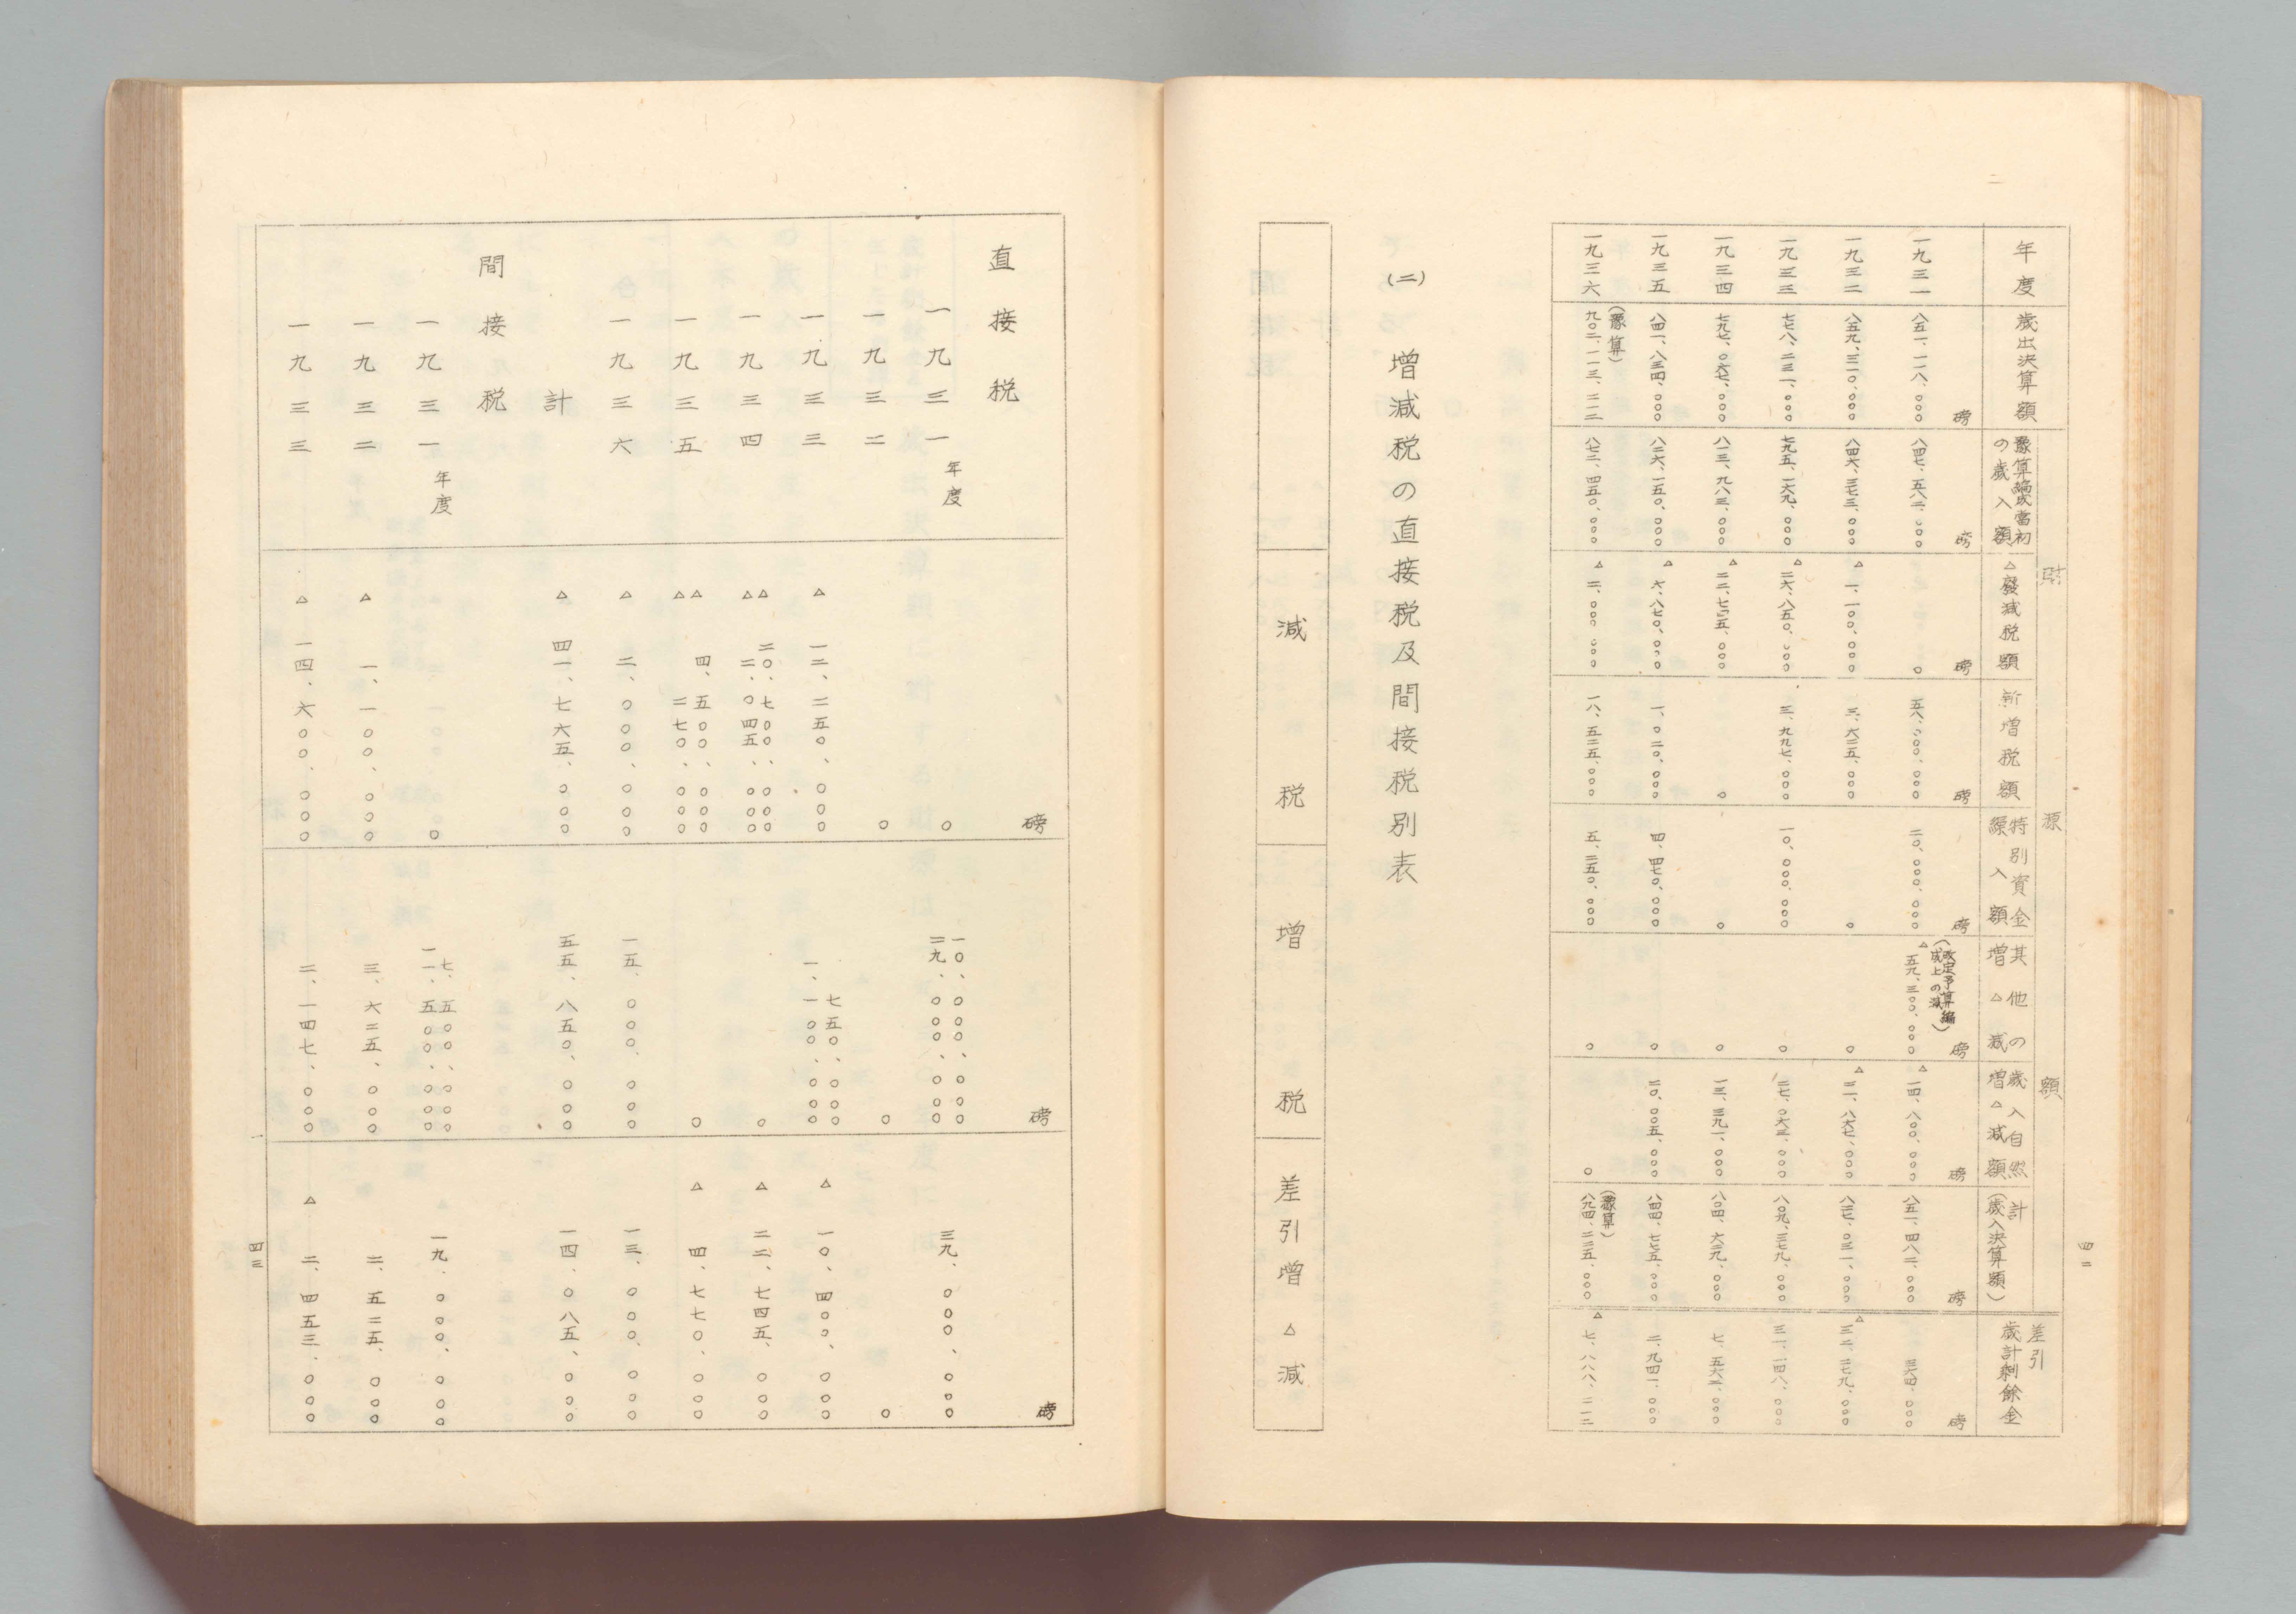 四二
年度 歳出決算額 財源額 豫算編成當初の歳入額 △廢減税額 新増税額 特別資金繰入額 其他の増△減 歳入自然増△減額 計(歳入決算額) 差引歳計剰餘金
磅 磅 磅 磅 磅 磅 磅 磅 磅
一九三一 八五一、一一八、〇〇〇 八四七、五八二、〇〇〇 〇 五八、〇〇〇、〇〇〇 二〇、〇〇〇、〇〇〇 (改定予算編成上の減) △五九、三〇〇、〇〇〇 △一四、八〇〇、〇〇〇 八五一、四八二、〇〇〇 三六四、〇〇〇
一九三二 八五九、三一〇、〇〇〇 八四六、三七三、〇〇〇 △一、一〇〇、〇〇〇 三、六二五、〇〇〇 〇 〇 △二一、八六七、〇〇〇 八二七、〇三一、〇〇〇 △三二、二七九、〇〇〇
一九三三 七七八、二三一、〇〇〇 七九五、一六九、〇〇〇 △二六、八五〇、〇〇〇 三、九九七、〇〇〇 一〇、〇〇〇、〇〇〇 〇 二七、〇六三、〇〇〇 八〇九、三七九、〇〇〇 三一、一四八、〇〇〇
一九三四 七九七、〇六七、〇〇〇 八一三、九八三、〇〇〇 △二二、七四五、〇〇〇 〇 〇 〇 一三、三九一、〇〇〇 八〇四、六二九、〇〇〇 七、五六二、〇〇〇
一九三五 八四一、八三四、〇〇〇 八二六、一五〇、〇〇〇 △六、八七〇、〇〇〇 一、〇二〇、〇〇〇 四、四七〇、〇〇〇 〇 二〇、〇〇五、〇〇〇 八四四、七七五、〇〇〇 二、九四一、〇〇〇
一九三六 (豫算) 九〇二、一一三、二一二 八七二、四五〇、〇〇〇 △二、〇〇〇、〇〇〇 一八、五二五、〇〇〇 五、二五〇、〇〇〇 〇 〇 (豫算) 八九四、二二五、〇〇〇 △七、八八八、二一二
(二) 増減税の直接税及間接税別表
減税 増税 差引増△減
直接税 磅 磅 磅
一九三一年度 〇 一〇、〇〇〇、〇〇〇 二九、〇〇〇、〇〇〇 三九、〇〇〇、〇〇〇
一九三二 〇 〇 〇
一九三三 △一二、二五〇、〇〇〇 七五〇、〇〇〇 一、一〇〇、〇〇〇 △一〇、四〇〇、〇〇〇
一九三四 △二〇、七〇〇、〇〇〇 △二、〇四五、〇〇〇 〇 △二二、七四五、〇〇〇
一九三五 △四、五〇〇、〇〇〇 △二七〇、〇〇〇 〇 △四、七七〇、〇〇〇
一九三六 △二、〇〇〇、〇〇〇 一五、〇〇〇、〇〇〇 一三、〇〇〇、〇〇〇
計 △四一、七六五、〇〇〇 五五、八五〇、〇〇〇 一四、〇八五、〇〇〇
間接税
一九三一年度 〇 七、五〇〇、〇〇〇 一一、五〇〇、〇〇〇 一九、〇〇〇、〇〇〇
一九三二 △一、一〇〇、〇〇〇 三、六二五、〇〇〇 二、五二五、〇〇〇
一九三三 △一四、六〇〇、〇〇〇 二、一四七、〇〇〇 △二、四五三、〇〇〇
四三